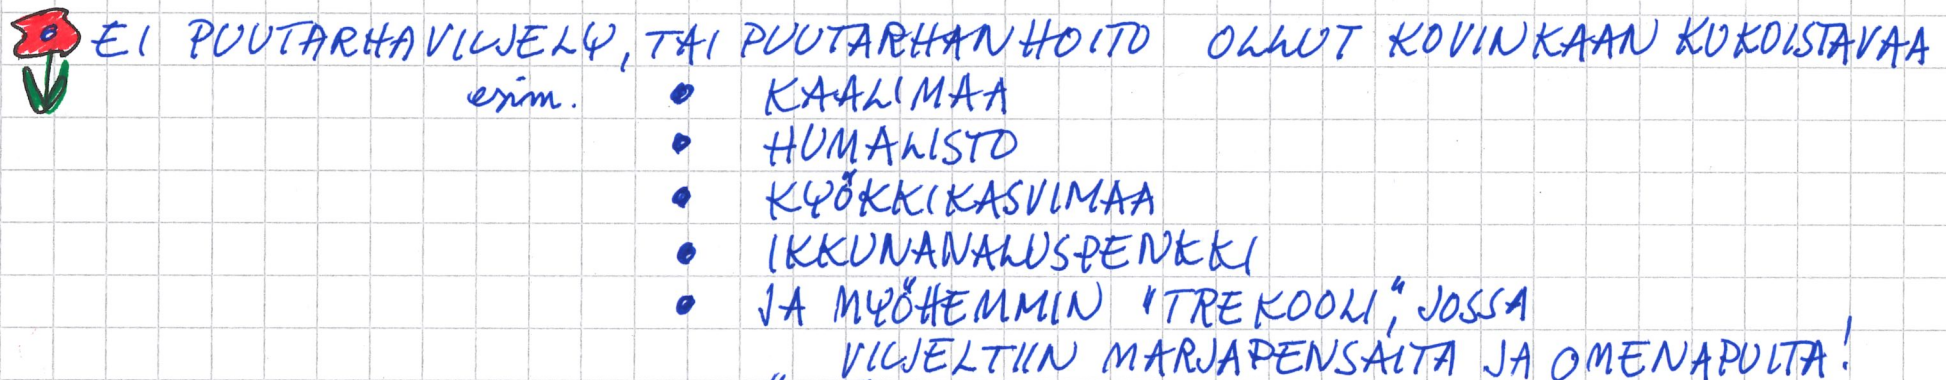 EI PUUTARHAVILJELY, TAI PUUTARHANHOITO OLLUT KOVINKAAN KUKOISTAVAA
esim. • KAALIMAA
• HUMALISTO
• KYÖKKIKASVIMAA
• IKKUNANALUSPENKKI
• JA MYÖHEMMIN "TREKOOLI", JOSSA
VILJELTIIN MARJAPENSAITA JA OMENAPUITA!